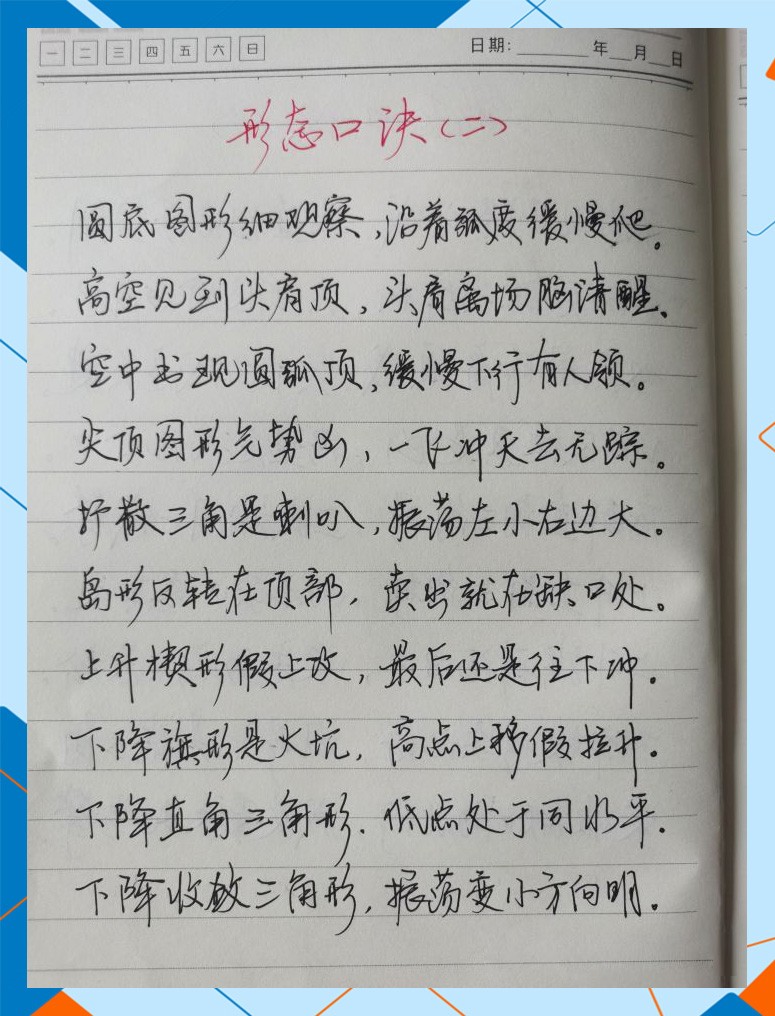 一 二 三 四 五 六 日
日期: 年 月 日
形态口诀(二)
圆底图形细观察,沿着弧度缓慢爬。
高空见到头肩顶,头肩离场脑清醒。
空中出现圆弧顶,缓慢下行有人领。
尖顶图形气势凶,一飞冲天去无踪。
扩散三角是喇叭,振荡左小右边大。
岛形反转在顶部,卖出就在缺口处。
上升楔形假上攻,最后还是往下冲。
下降旗形是火坑,高点上移假拉升。
下降直角三角形.低点处于同水平.
下降收敛三角形,振荡变小方向明。